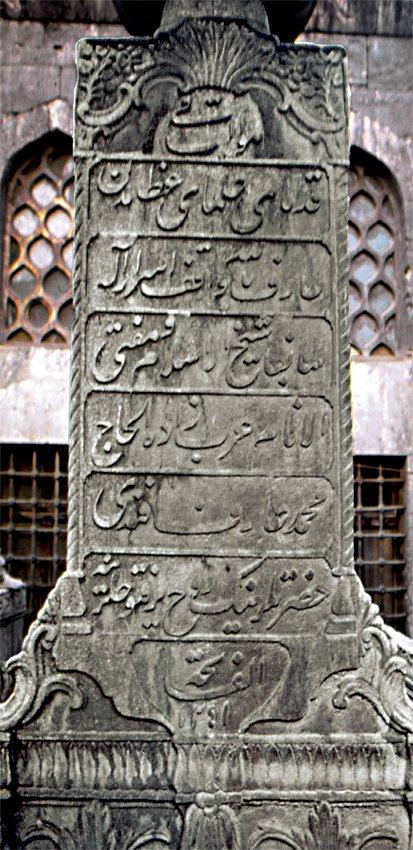 هو الباقي
قدماى علماى عظامدن
عارف بالله واقف اسرار آله
سابقا شيخ اسلام و مفتى
الانام عرب زاده الحاج
محمد عارف افندى
حضرتلرينك روح پرفتوحلرينه
الفاتحة
١٢٤١